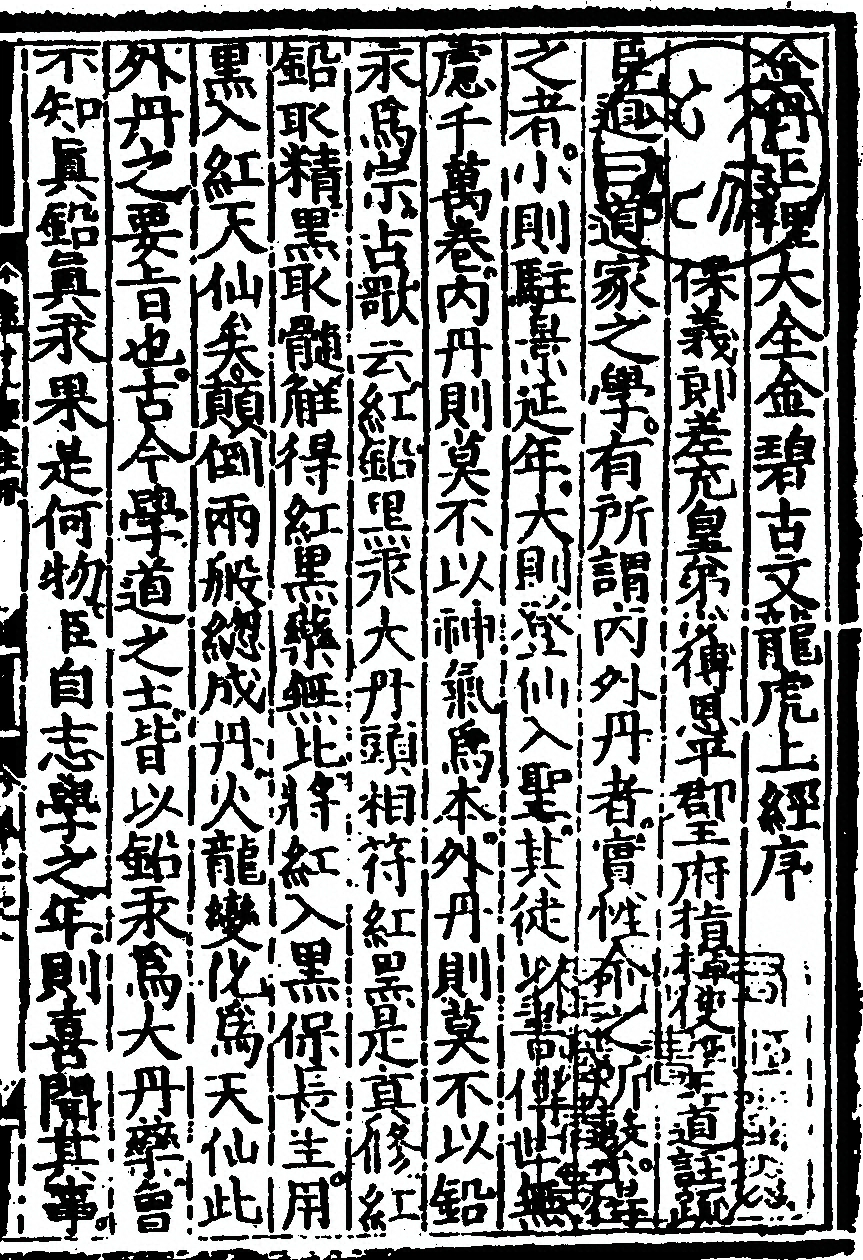 金丹正理大全金碧古文龍虎上經序
保義郎差充皇弟溥恩平郡王府指揮使臣王道註疏
臣道曰道家之學有所謂内外丹者實性命之所繫得
之者小則駐景延年大則登仙入聖其徒以書傳世無
慮千萬卷内丹則莫不以神氣爲本外丹則莫不以鉛
汞爲宗古歌云紅鉛黑汞大丹頭相符紅黑是真修紅
鉛取精黑取髓觧得紅黑藥無比將紅入黑保長生用
黑入紅天仙矣顛倒兩般總成丹火龍變化爲天仙此
外丹之要旨也古今學道之士皆以鉛汞爲大丹藥曾
不知眞鉛眞汞果是何物臣自志學之年則喜聞其事